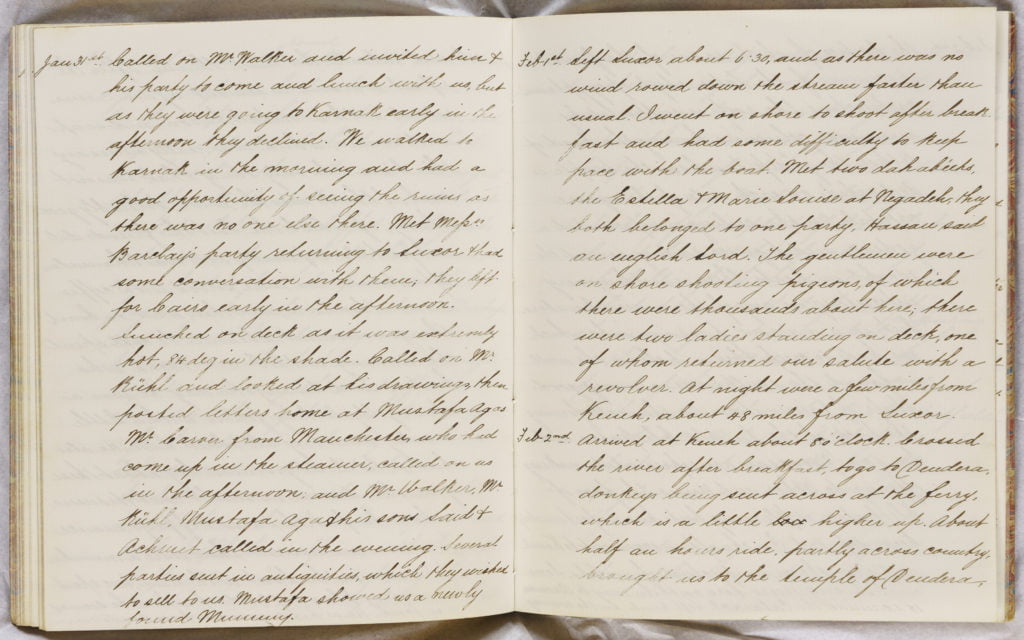 Jan 31st. Called on Mr Walker and invited him &
his party to come and lunch with us, but
as they were going to Karnak early in the
afternoon they declined. We walked to
Karnak in the morning and had a
good opportunity of seeing the ruins as
there was no one else there. Met Messrs
Barclay's party returning to Luxor & had
some conversation with them; they left
for Cairo early in the afternoon.
Lunched on deck as it was extremely
hot, 84 deg in the shade. Called on Mr.
Rühl and looked at his drawings, then
posted letters home at Mustafa Agas
Mr. Carver from Manchester, who had
come up in the steamer, called on us
in the afternoon; and Mr Walker, Mr.
Rühl, Mustafa Aga & his sons Said &
Achmet called in the evening. Several
parties sent in antiquities, which they wished
to sell to us. Mustafa showed us a newly
found Mummy.
Feb 1st. Left Luxor about 6.30, and as there was no
wind rowed down the stream faster than
usual. I went on shore to shoot after break-
fast and had some difficulty to keep
pace with the boat. Met two dahabeihs,
the Estella & Marie Louise at Negadeh, they
both belonged to one party, Hassan said
an english Lord. The gentlemen were
on shore shooting pigeons, of which
there were thousands about here; there
were two ladies standing on deck, one
of whom returned our salute with a
revolver. At night were a few miles from
Keneh, about 48 miles from Luxor.
Feb 2nd. Arrived at Keneh about 8 o'clock. Crossed
the river after breakfast, to go to Dendera,
donkeys being sent across at the ferry,
which is a little higher up. About
half an hours ride, partly across country,
brought us to the temple of Dendera,